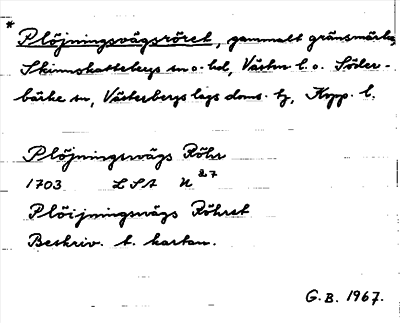 * Plöjningsvägsröret, gammalt gränsmärke
Skinnskattebergs sn o. hd, Västm l. o. Söder-
bärke sn, Västerbergslags doms. tg, Kopp. l.
Plöjningswägs Röhr
1703 LSA N 27
Plöijningswägs Röhret
Beskriv. t. kartan.
G.B. 1967.